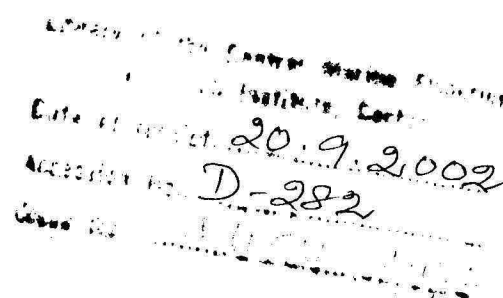 Library of the Central Marine Fisheries
Institute, Cochin
Date of receipt 20.9.2002
Accession No. D-282
Class No.